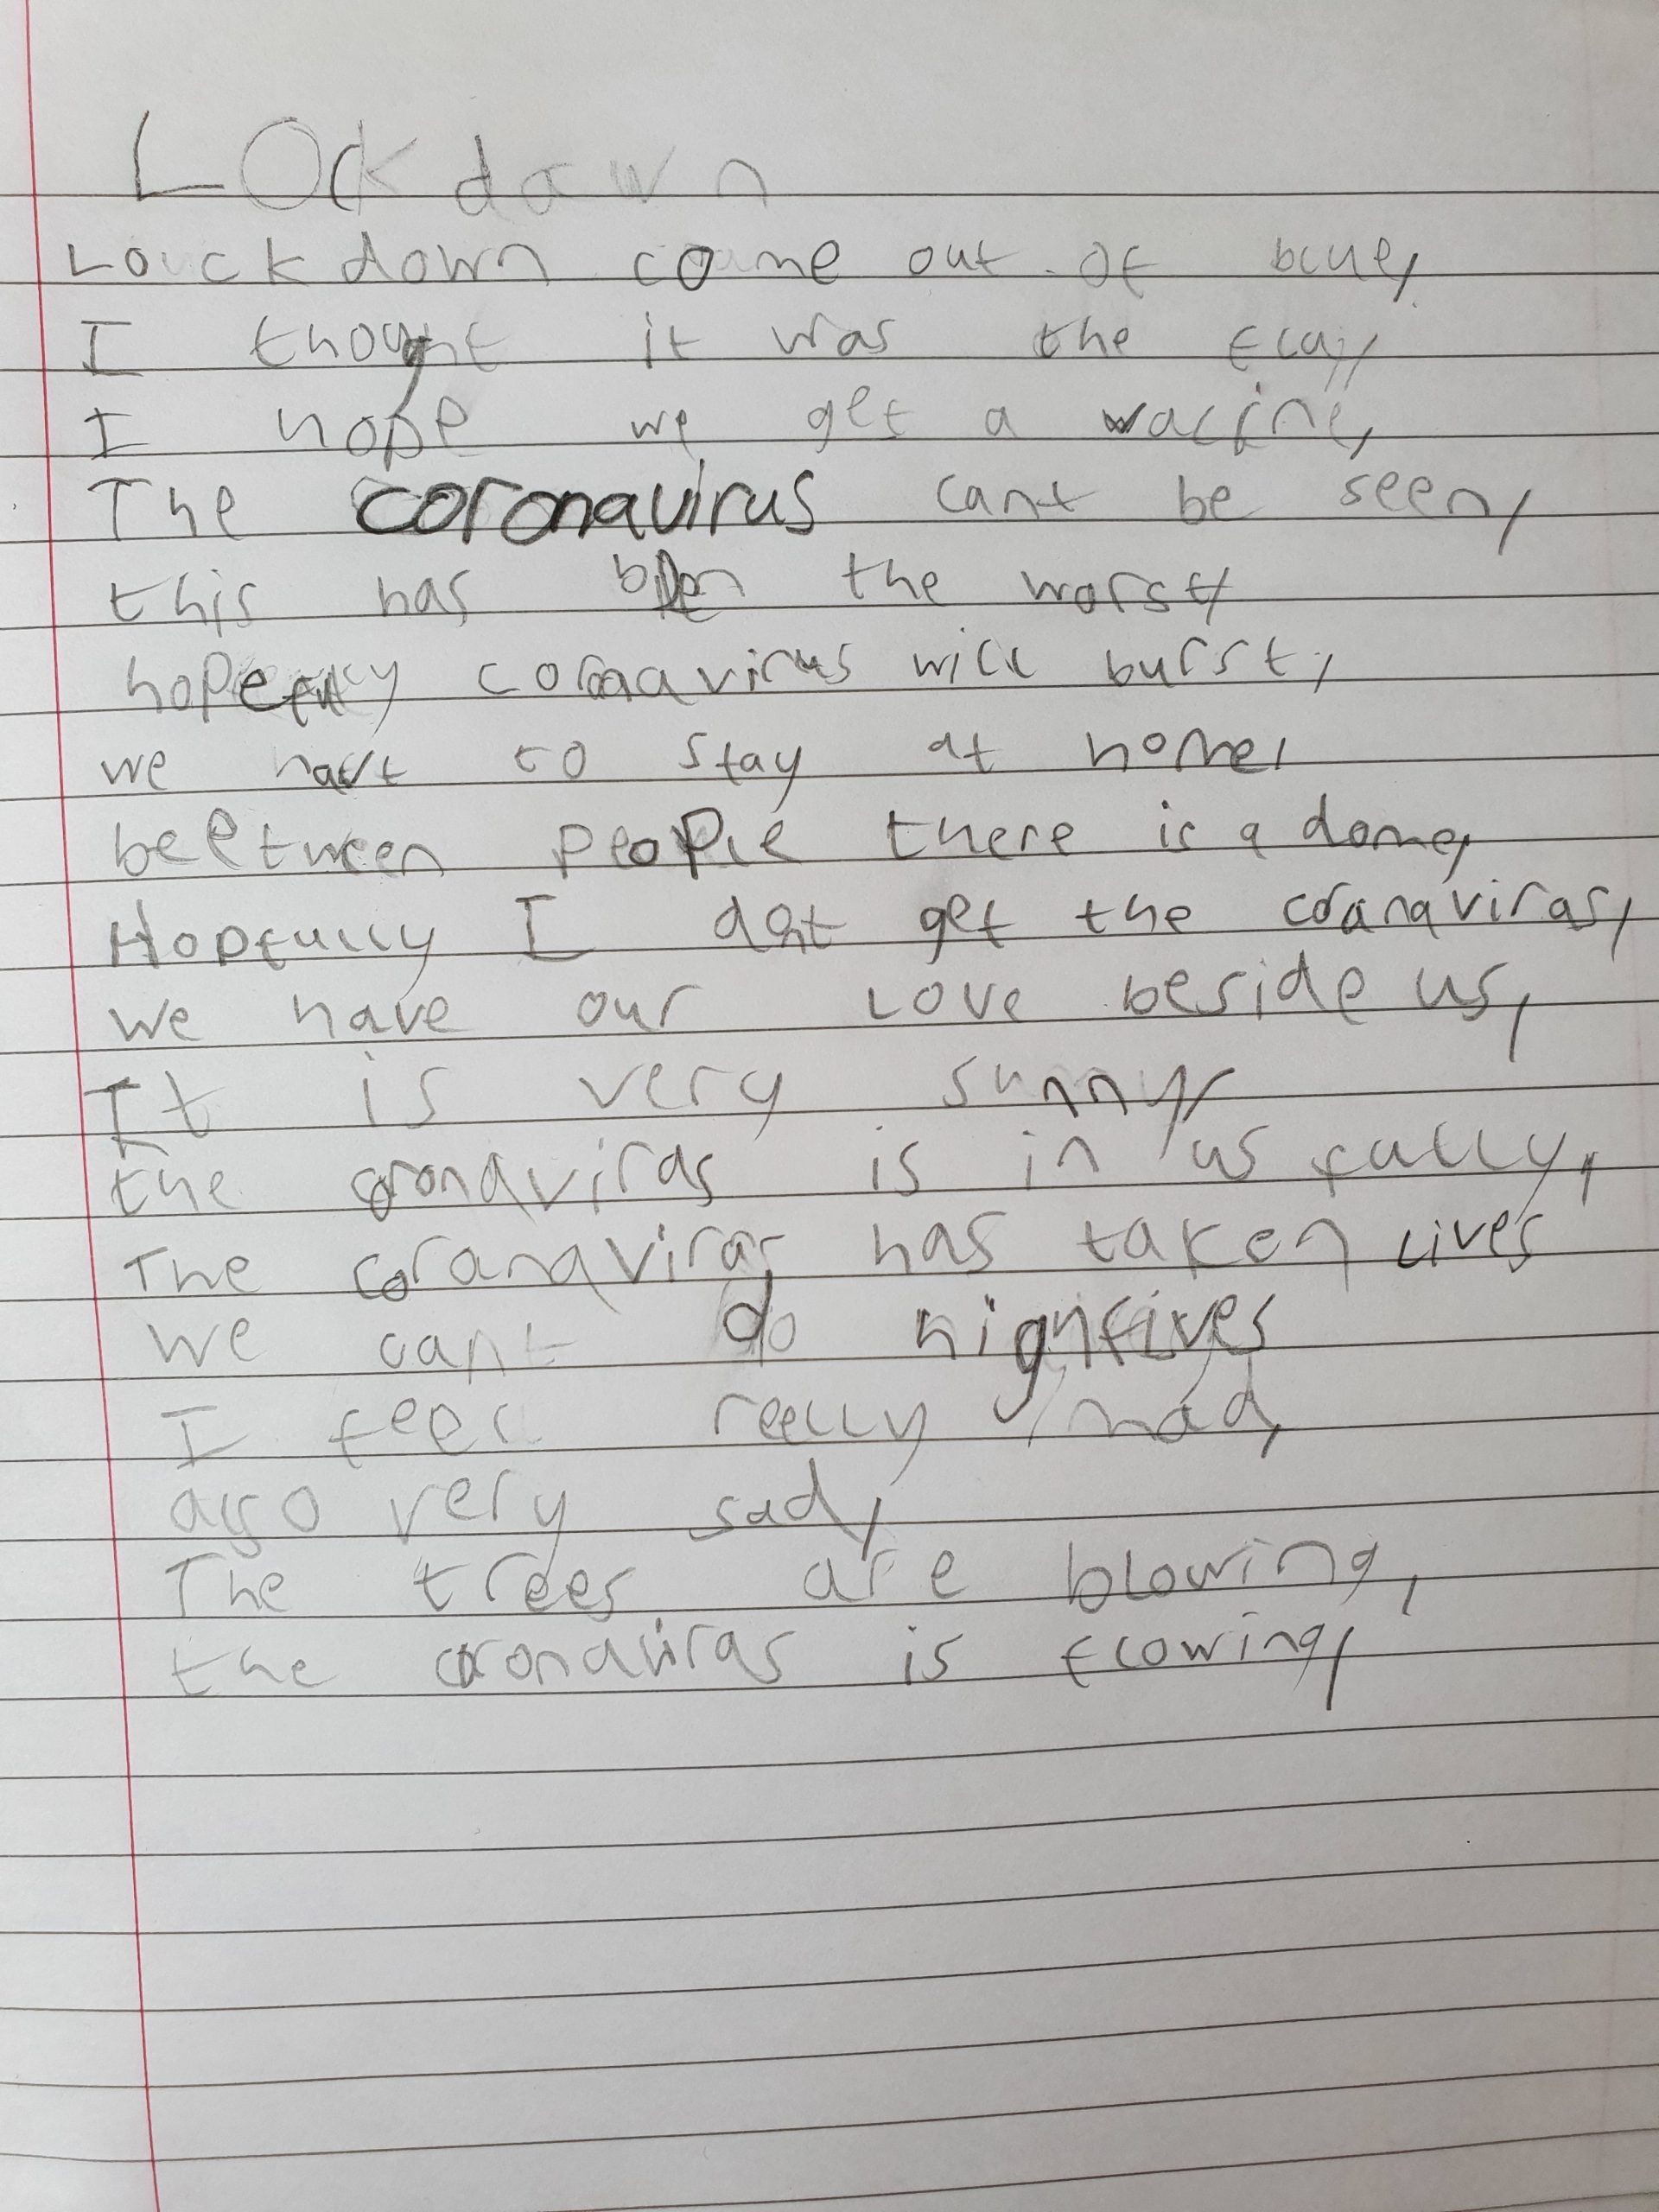 Lockdown
Louckdown come out of blue,
I thought it was the flu,
I hope we get a vaccine,
The coronavirus cant be seen,
this has been the worst,
hopefully coronavirus will burst,
we have to stay at home,
beetween people there is a dome,
Hopfully I dont get the coranaviras,
we have our Love beside us,
It is very sunny,
the coronaviras is in us fully,
The coranaviras has taken lives
we cant do highfives
I feel reelly mad,
also very sad,
The trees are blowing,
the coronaviras is flowing,